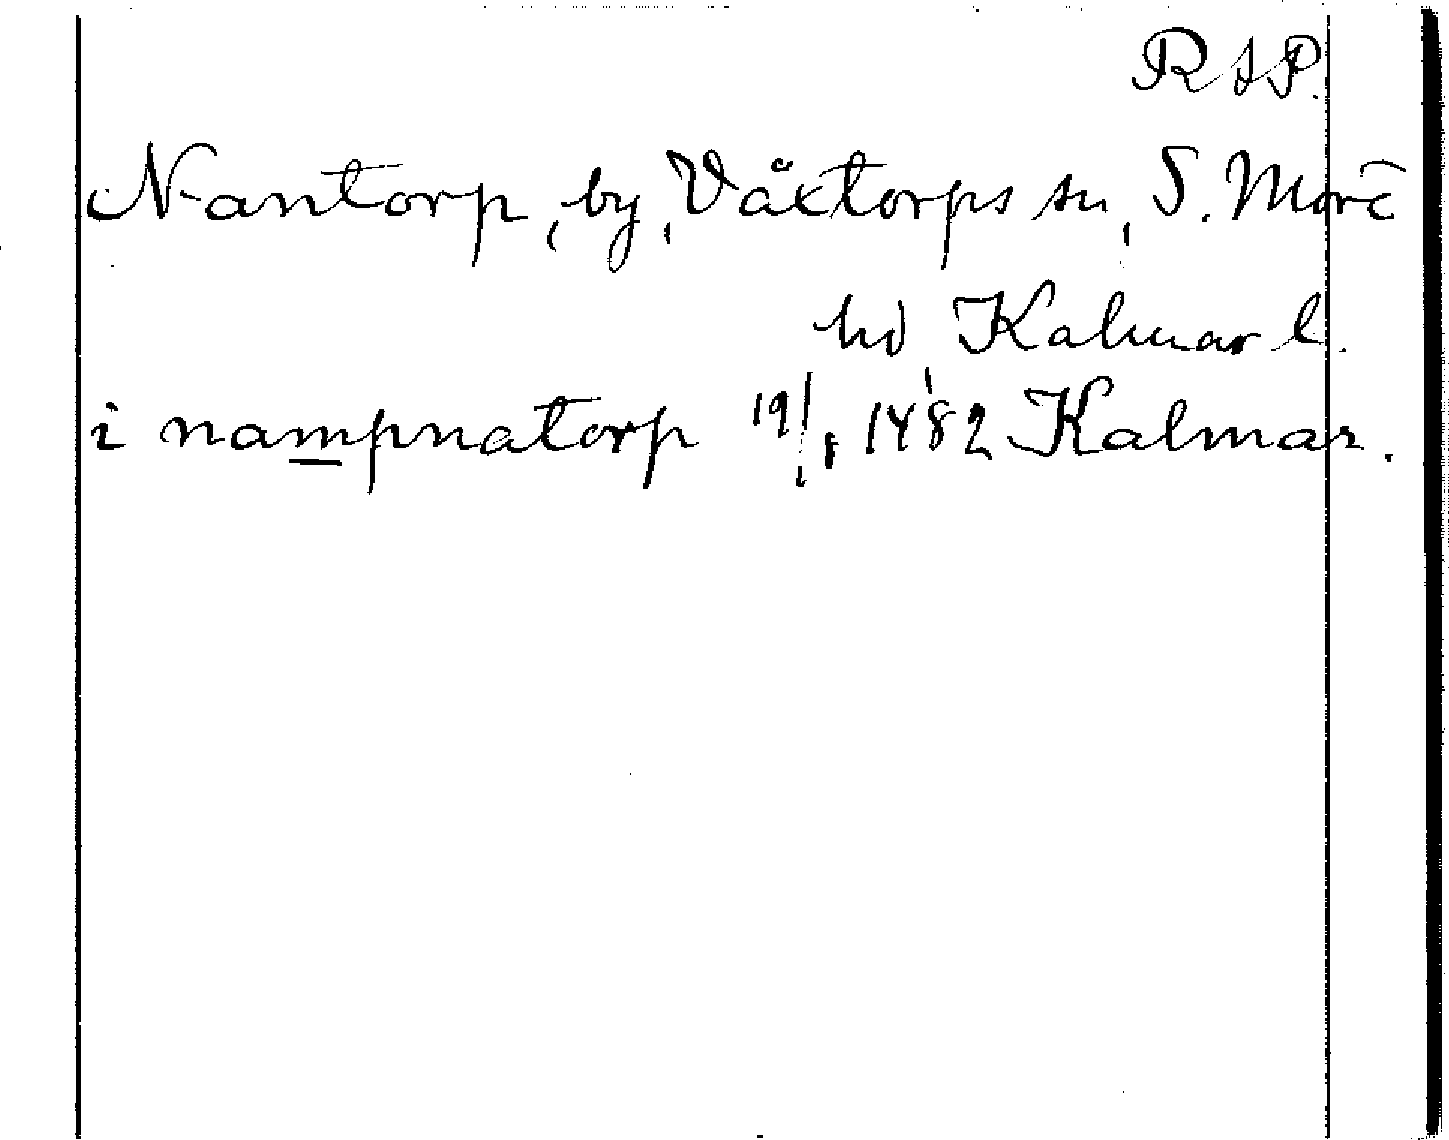 RAP.
Nantorp, by, Växtorps sn, S. Möre
hd, Kalmar l.
i nampnatorp 19/1 1482 Kalmar.